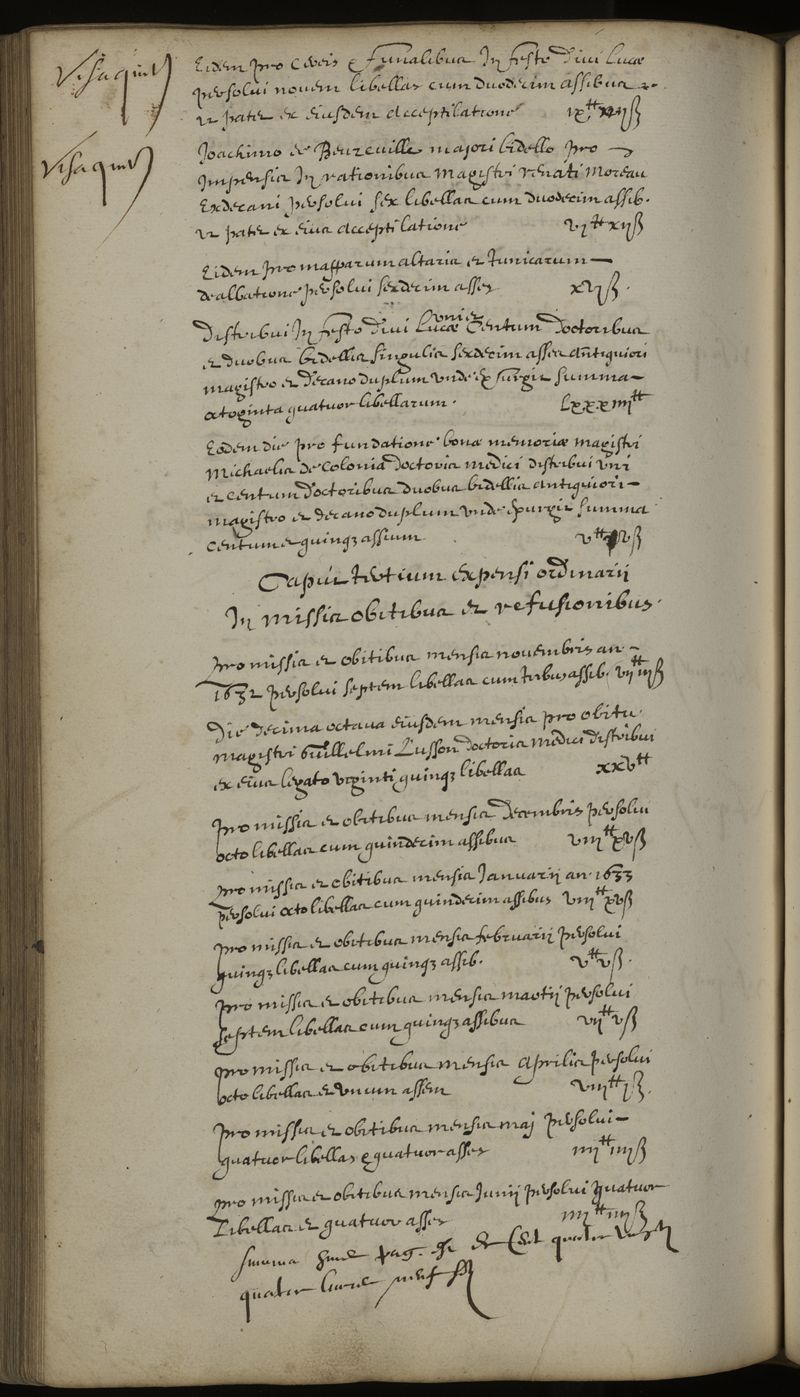 Visa quit
Eidem pro cereis et funalibus In festo divi Lucæ
persolvi novem libellas cum duodecim assibus
ut patet ex eiusdem acceptilatione ix₶ xijß
Visa quit
Joachimo de Beurevill majori bidello pro
impensis In rationibus magistri renati moreau
Exdecani persolvi sex libellas cum duodecim assib.
ut patet ex eius acceptilatione vj₶ xijß
Eidem pro mapparum altaris et tunicarum
dealbatione persolvi sexdecim asses xvjß.
Distribui In festo divi Lucæ Centum unicuique doctoribus
et duobus bidellis singulis sexdecim asses antiquiori
magistro et decano duplum unde exsurgit summa
octoginta quatuor libellarum. Lxxxiiij₶
Eodem die pro fundatione bonæ memoriæ magistri
Michaelis de Colonia doctoris medici distribui uni
et centum doctoribus duobus bidellis antiquiori
magistro et decano duplum unde exsurgit summa
centum et quinq; assium v₶ vß
Caput tertium expensi ordinarii
In missis obitibus et refusionibus.
pro missis et obitibus mensis novembris an
1632 persolvi septem libellas cum tribus assib. vij₶ iijß
Die decima octava eiusdem mensis pro obitu
magistri Guillelmi Lusson doctoris medici distribui
ex eius legato viginti quinq; libellas xxv₶
pro missis et obitibus mensis decembris persolvi
octo libellas cum quindecim assibus viij₶ xvß
pro missis et obitibus mensis Januarii an. 1633
persolvi octo libellas cum quindecim assibus viij₶ xvß
pro missis et obitibus mensis februarii persolvi
quinq; libellas cum quinq; assib. v₶ vß.
pro missis et obitibus mensis martii persolvi
septem libellas cum quinq; assibus vij₶ vß
pro missis et obitibus mensis Aprilis persolvi
octo libellas et unum assem viij₶ jß.
pro missis et obitibus mensis maj persolvi
quatuor libellas et quatuor asses iiij₶ iiijß
pro missis et obitibus mensis Junij persolvi quatuor
Libellas et quatuor asses iiij₶ iiijß
summa pag. est quatre vingt
quatre livres neuf ß